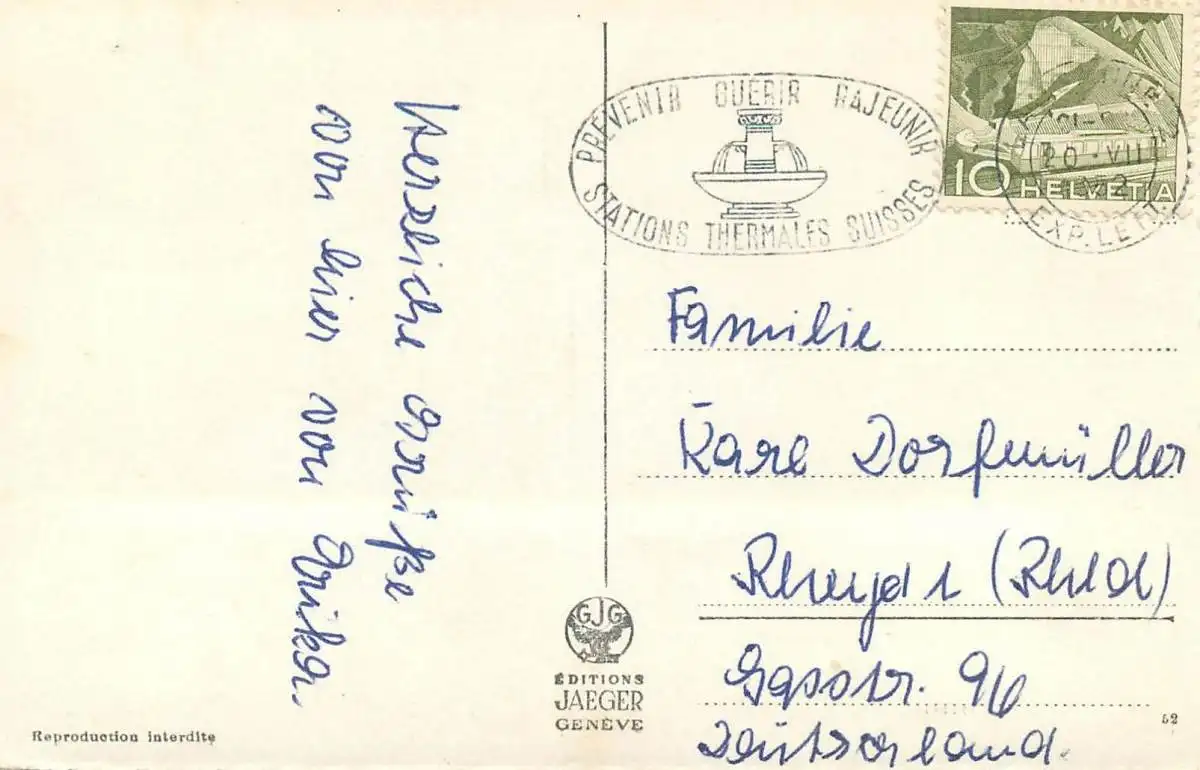 Herzliche Grüße
von hier von Erika.
PRÉVENIR GUÉRIR RAJEUNIR
STATIONS THERMALES SUISSES
10 HELVETIA
20-VII
EXP. LETT
Familie
Karl Dorfmüller
Rheydt (Rhld)
Gasstr. 96
Deutschland.
GJG
ÉDITIONS
JAEGER
GENÈVE
52
Reproduction interdite